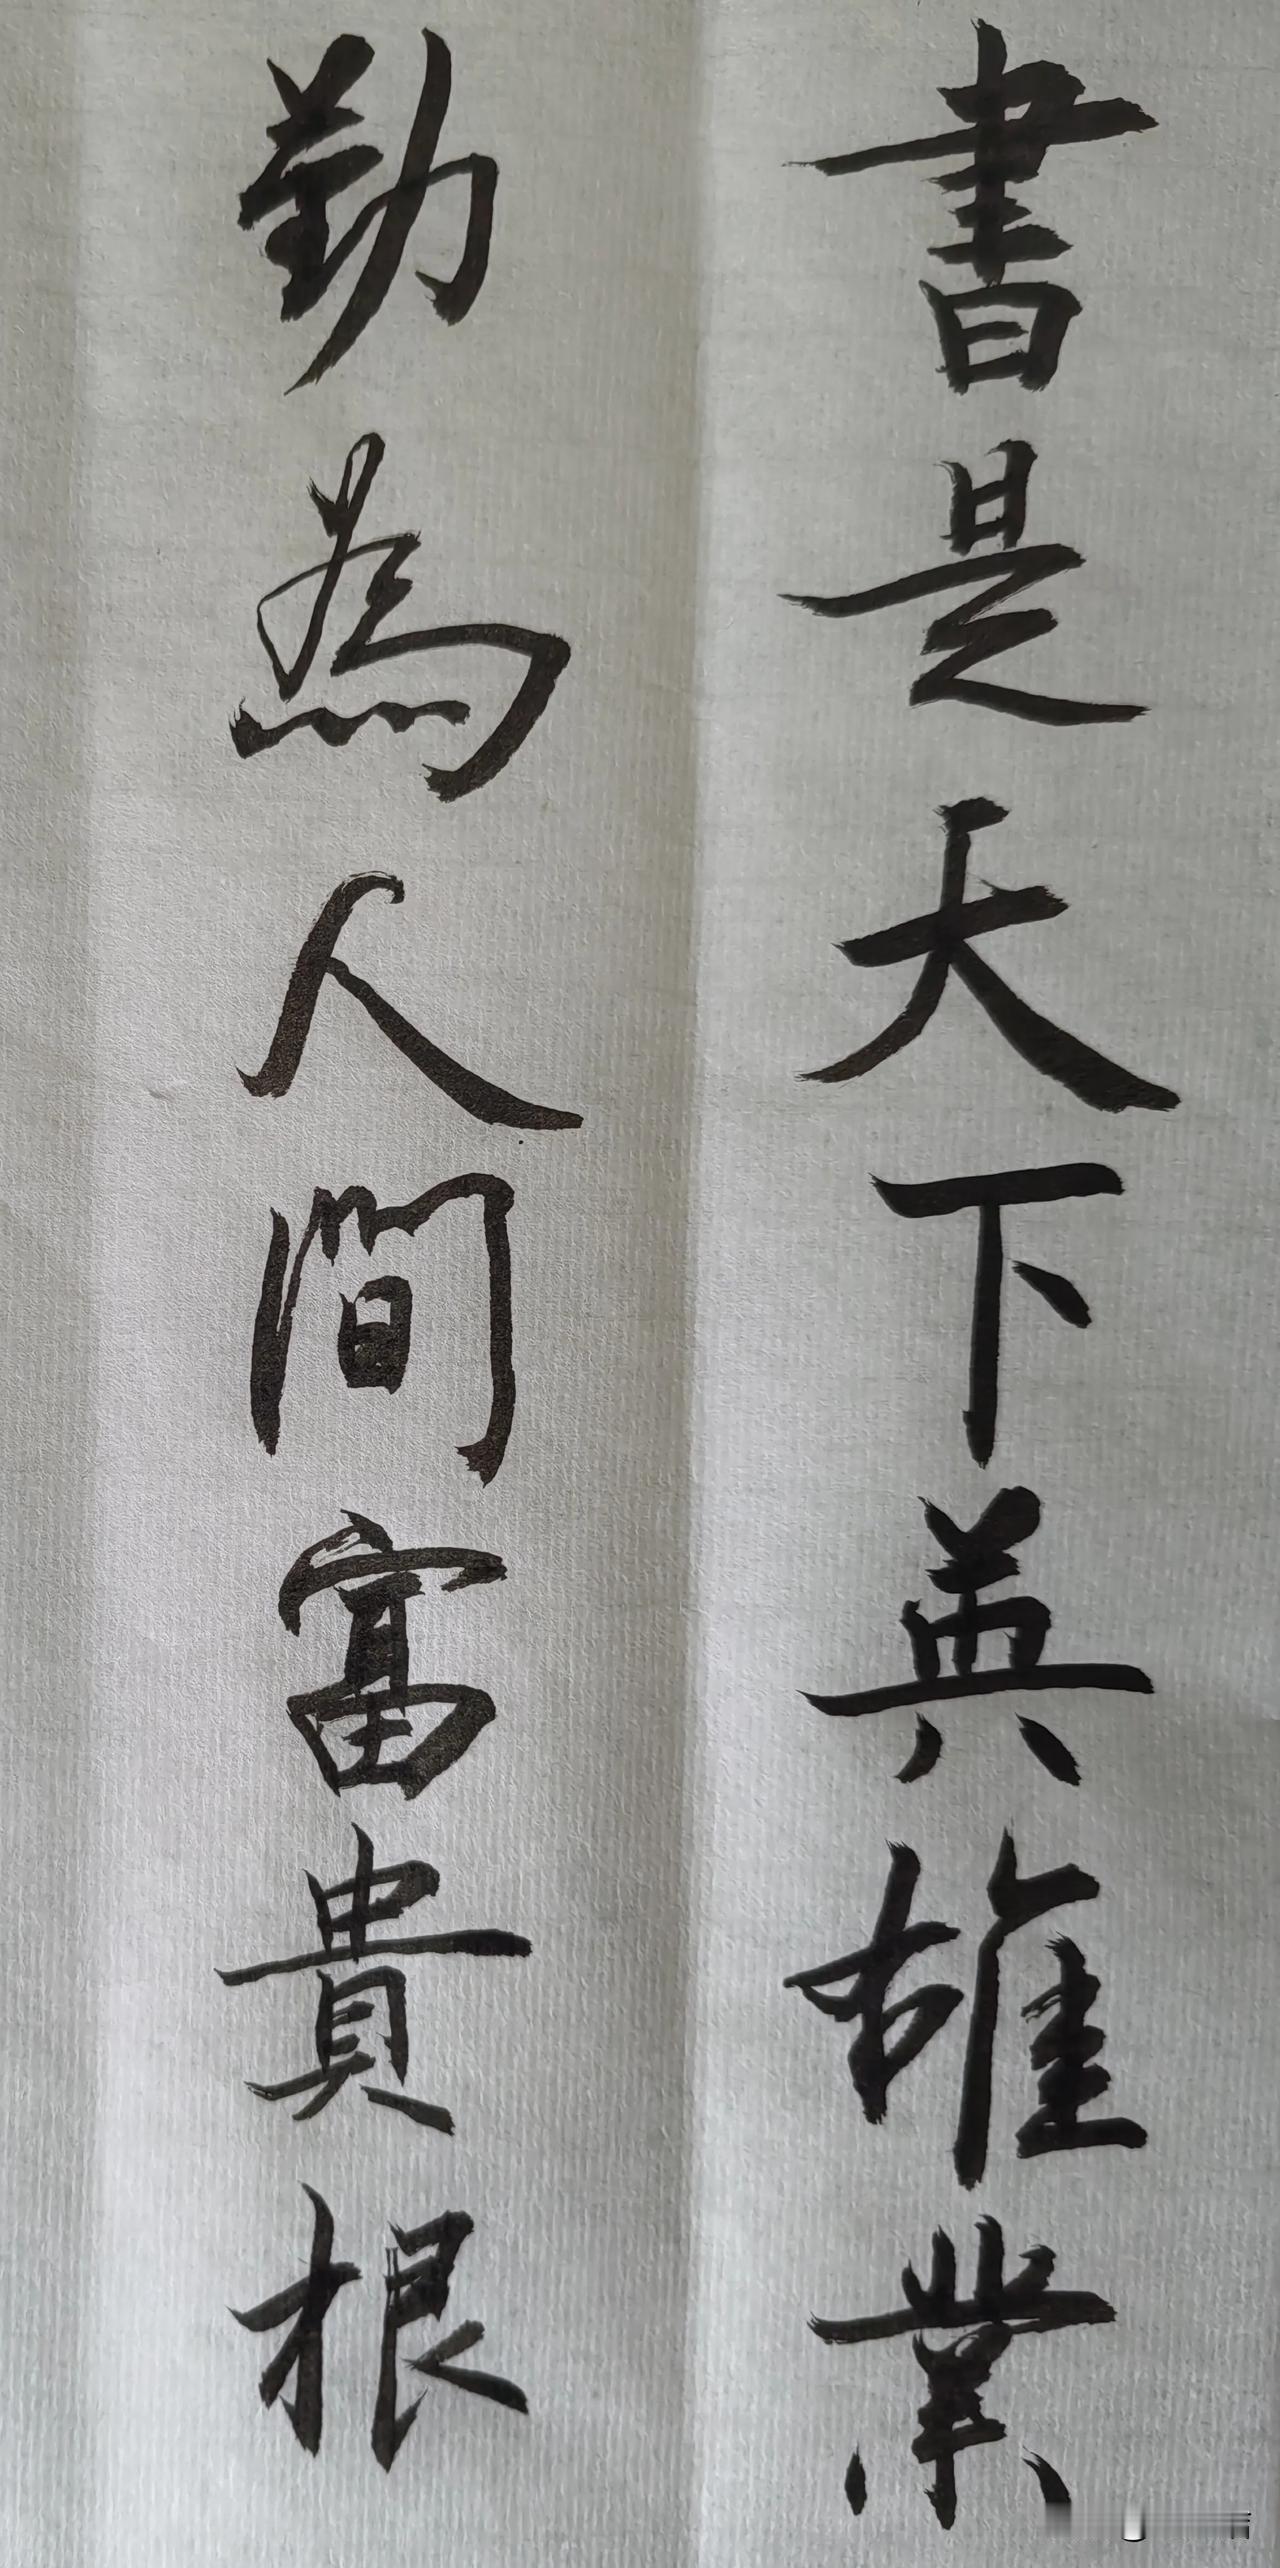 書是天下英雄業
勤為人間富貴根